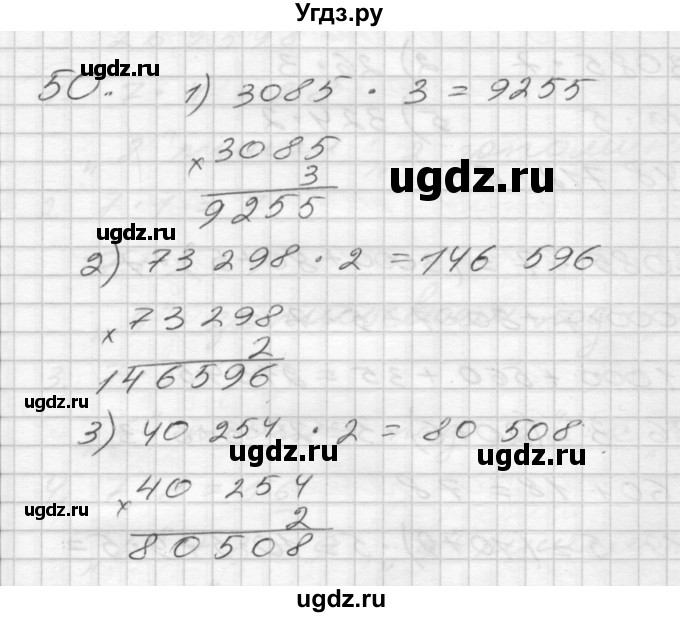 Угдз.ру
50. 1) 3085 · 3 = 9255
ugdz.ru
× 3085
3
ugdz.ru
9255
ugdz.ru
2) 73 298 · 2 = 146 596
× 73 298
2
146596
ugdz.ru
3) 40 254 · 2 = 80 508
ugdz.ru
ugdz.ru
× 40 254
2
ugdz.ru
80508
ugdz.ru